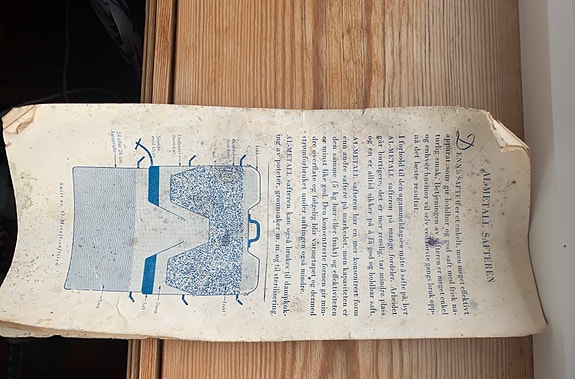 AL-METALL SAFTEREN
DENNE SAFTER er et enkelt, men meget effektivt
apparat som gir holdbar og god saft med frisk na-
turlig smak. Betjeningen av safteren er meget enkel
og enhver husmor vil selv ved første gangs bruk opp-
nå det beste resultat.
I forhold til den »gammeldagse« måte å safte på, byr
AL-METALL safteren på mange fordeler. Arbeidet
går hurtigere, det er mer renslig, tar mindre plass
og en er alltid sikker på å få god og holdbar saft.
AL-METALL safteren har en mer konsentrert form
enn andre saftere på markedet, men kapasiteten er
den samme (5 kg bær eller frukt) og effektiviteten
er minst like god. Den konsentrerte formen gir min-
dre overflate og følgelig blir varmetapet og dermed
strømforbruket under saftingen også mindre.
AL-METALL safteren kan også brukes til dampkok-
ing av poteter, grønnsaker m. m. og til sterilisering.
Lokk